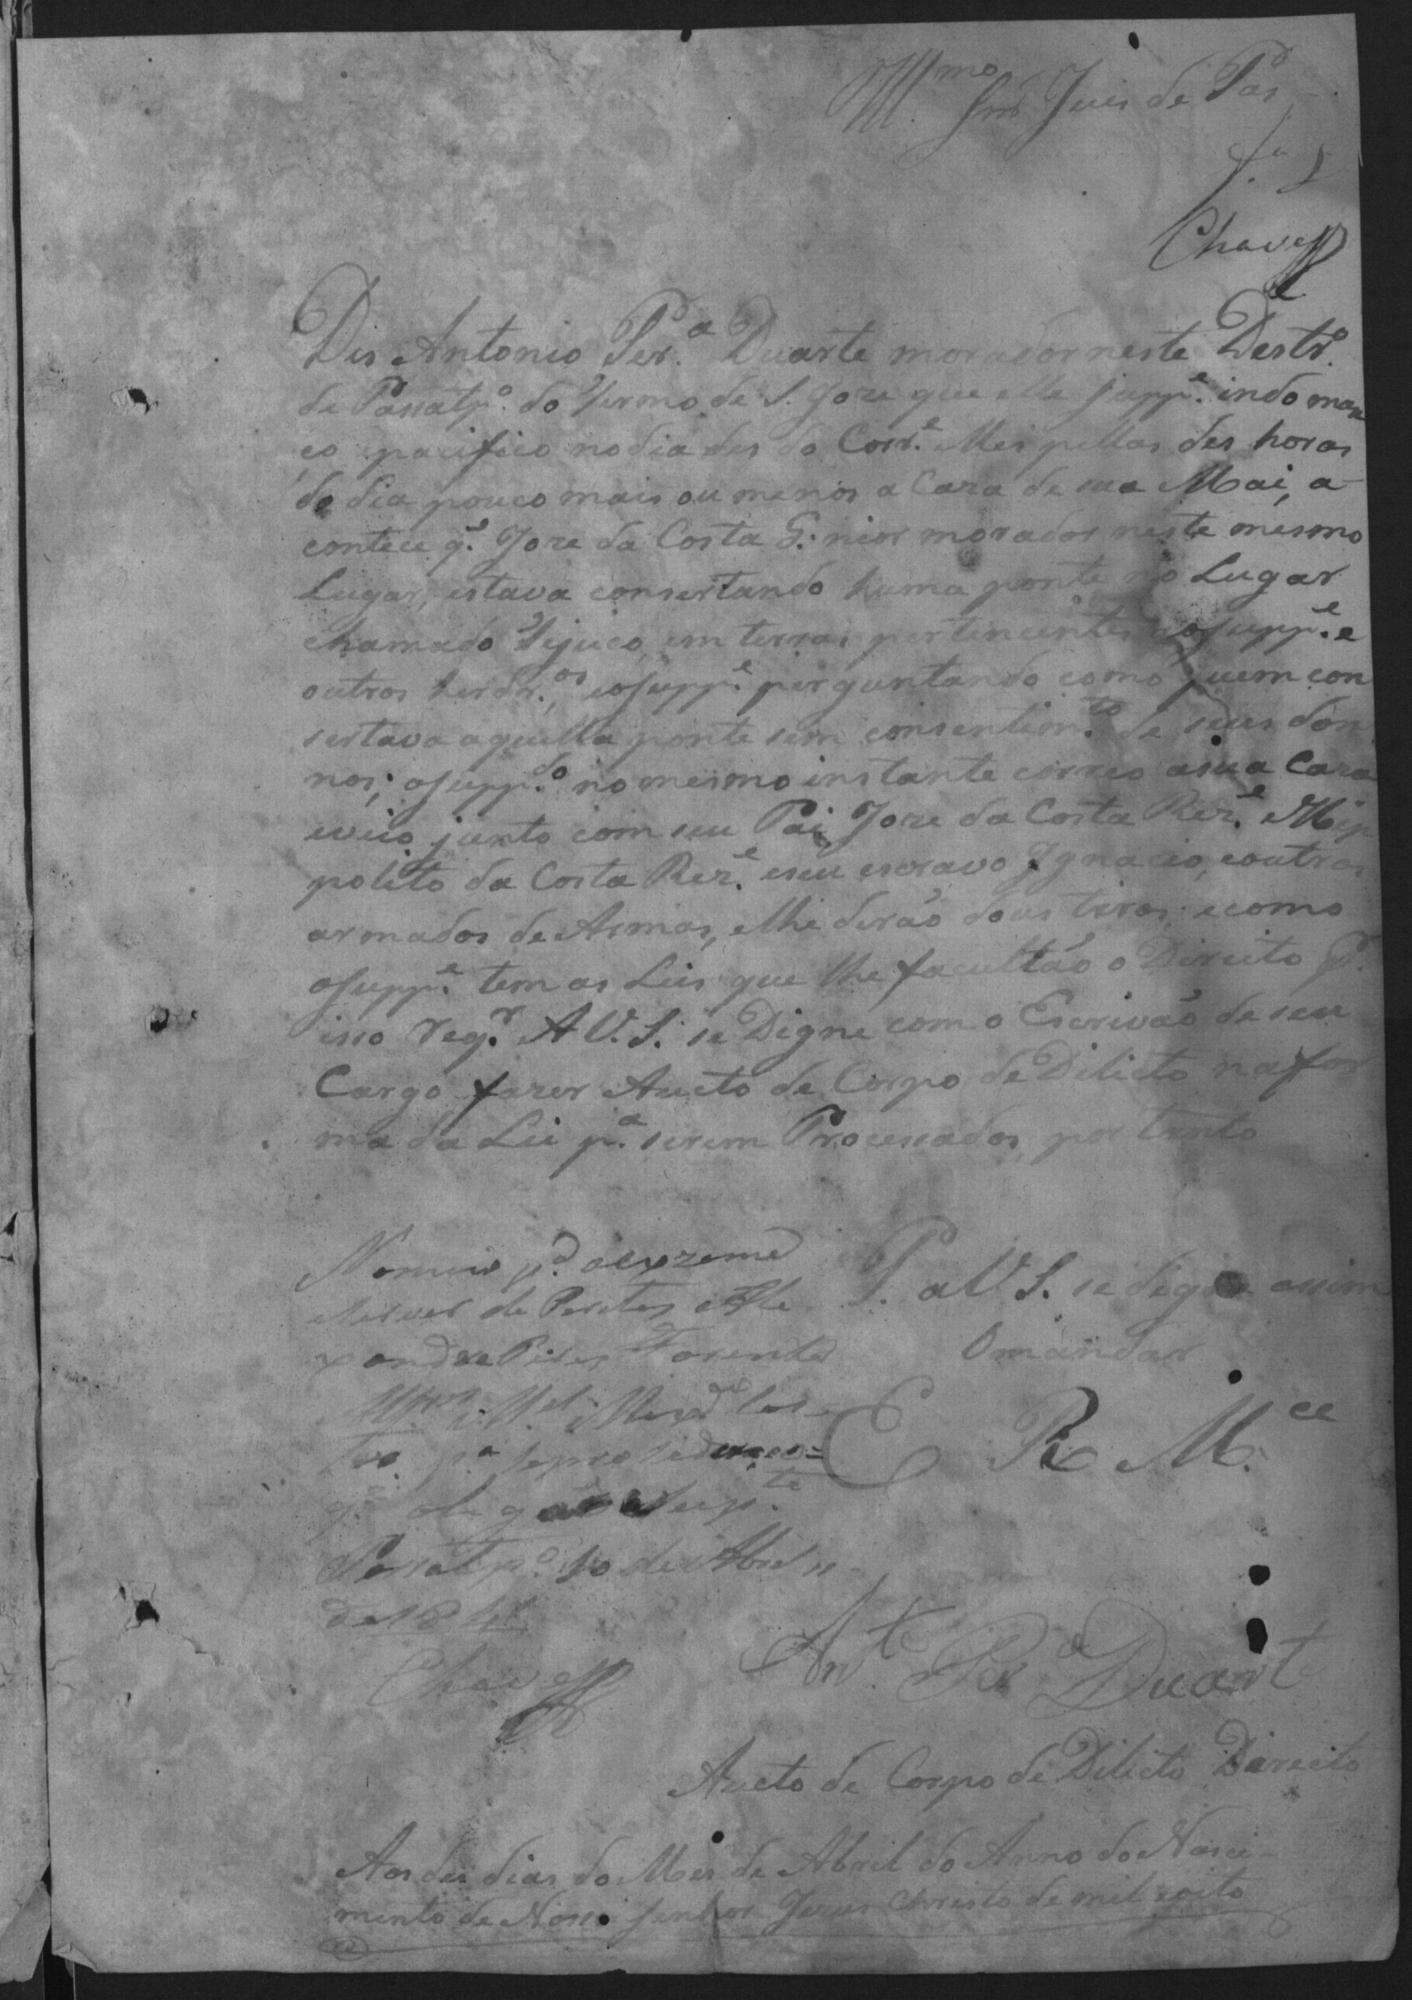 Ill.mo Snr Juis de Pas
Chaves
Dis Antonio Per.a Duarte morador neste Destr.o
de Passatp.o do Termo de S. Joze que elle supp.e indo man
ço epacifico no dia des do Corr.e Mes pellas des horas
do dia pouco mais ou menos a Caza de sua Mai, a-
contece q.e Joze da Costa morador neste mesmo
Lugar, estava consertando huma ponte no Lugar
chamado Tijuco, em terras pertincentes ao supp.e e
outros herdr.os, eosupp.e perguntando como quem con
sertava aquella ponte sem consentim.to de seus don
nos; osupp.do no mesmo instante correo asua Caza
eveio junto com seu Pai Joze da Costa Rez.e eHip
polito da Costa Rez.e eseu escravo Ignacio, eoutros
armados de Armas, elhe derão dous tiros; ecomo
osupp.e tem as Leis que lhe facultão o Direito P.r
isso req.r A V.S. se Digne com o Escrivão de seu
Cargo fazer Aucto de Corpo de Dilicto na for
ma da Lei p.a serem Processados, por tanto
P. a V.S. se digne assim
O mandar
E R M.ce
Nomeio p.a oexzame
de Peritos eAle
xandre Pires
p.a
Passatp.o 10 de Abril
de 184
Chaves
Ant.e Per.a Duart
Aucto de Corpo de Dilicto Direcito
Aos des dias do Mes de Abril do Anno do Nasci-
mento de Nosso Senhor Jezus Christo de mil eoito